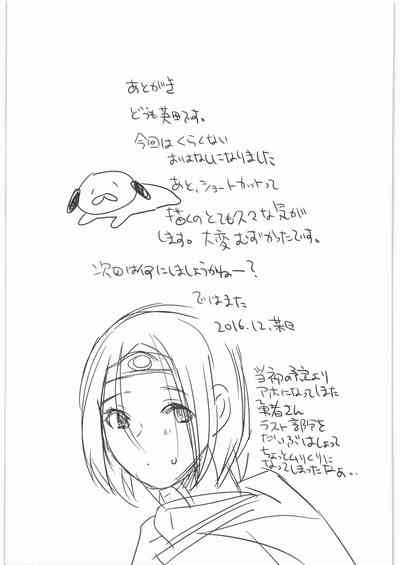 あとがき
どうも英田です。
今回はくらくない
おはなしになりました
あと、ショートカットって
描くのとても久々な気が
します。大変むずかったです。
次回は何にしましょうかねー？
ではまた
2016.12.
当初の予定より
アホになってしまた
勇者さん
ラスト部分を
だいぶはしょって
ちょっとムリくりに
なってしまったなぁ..